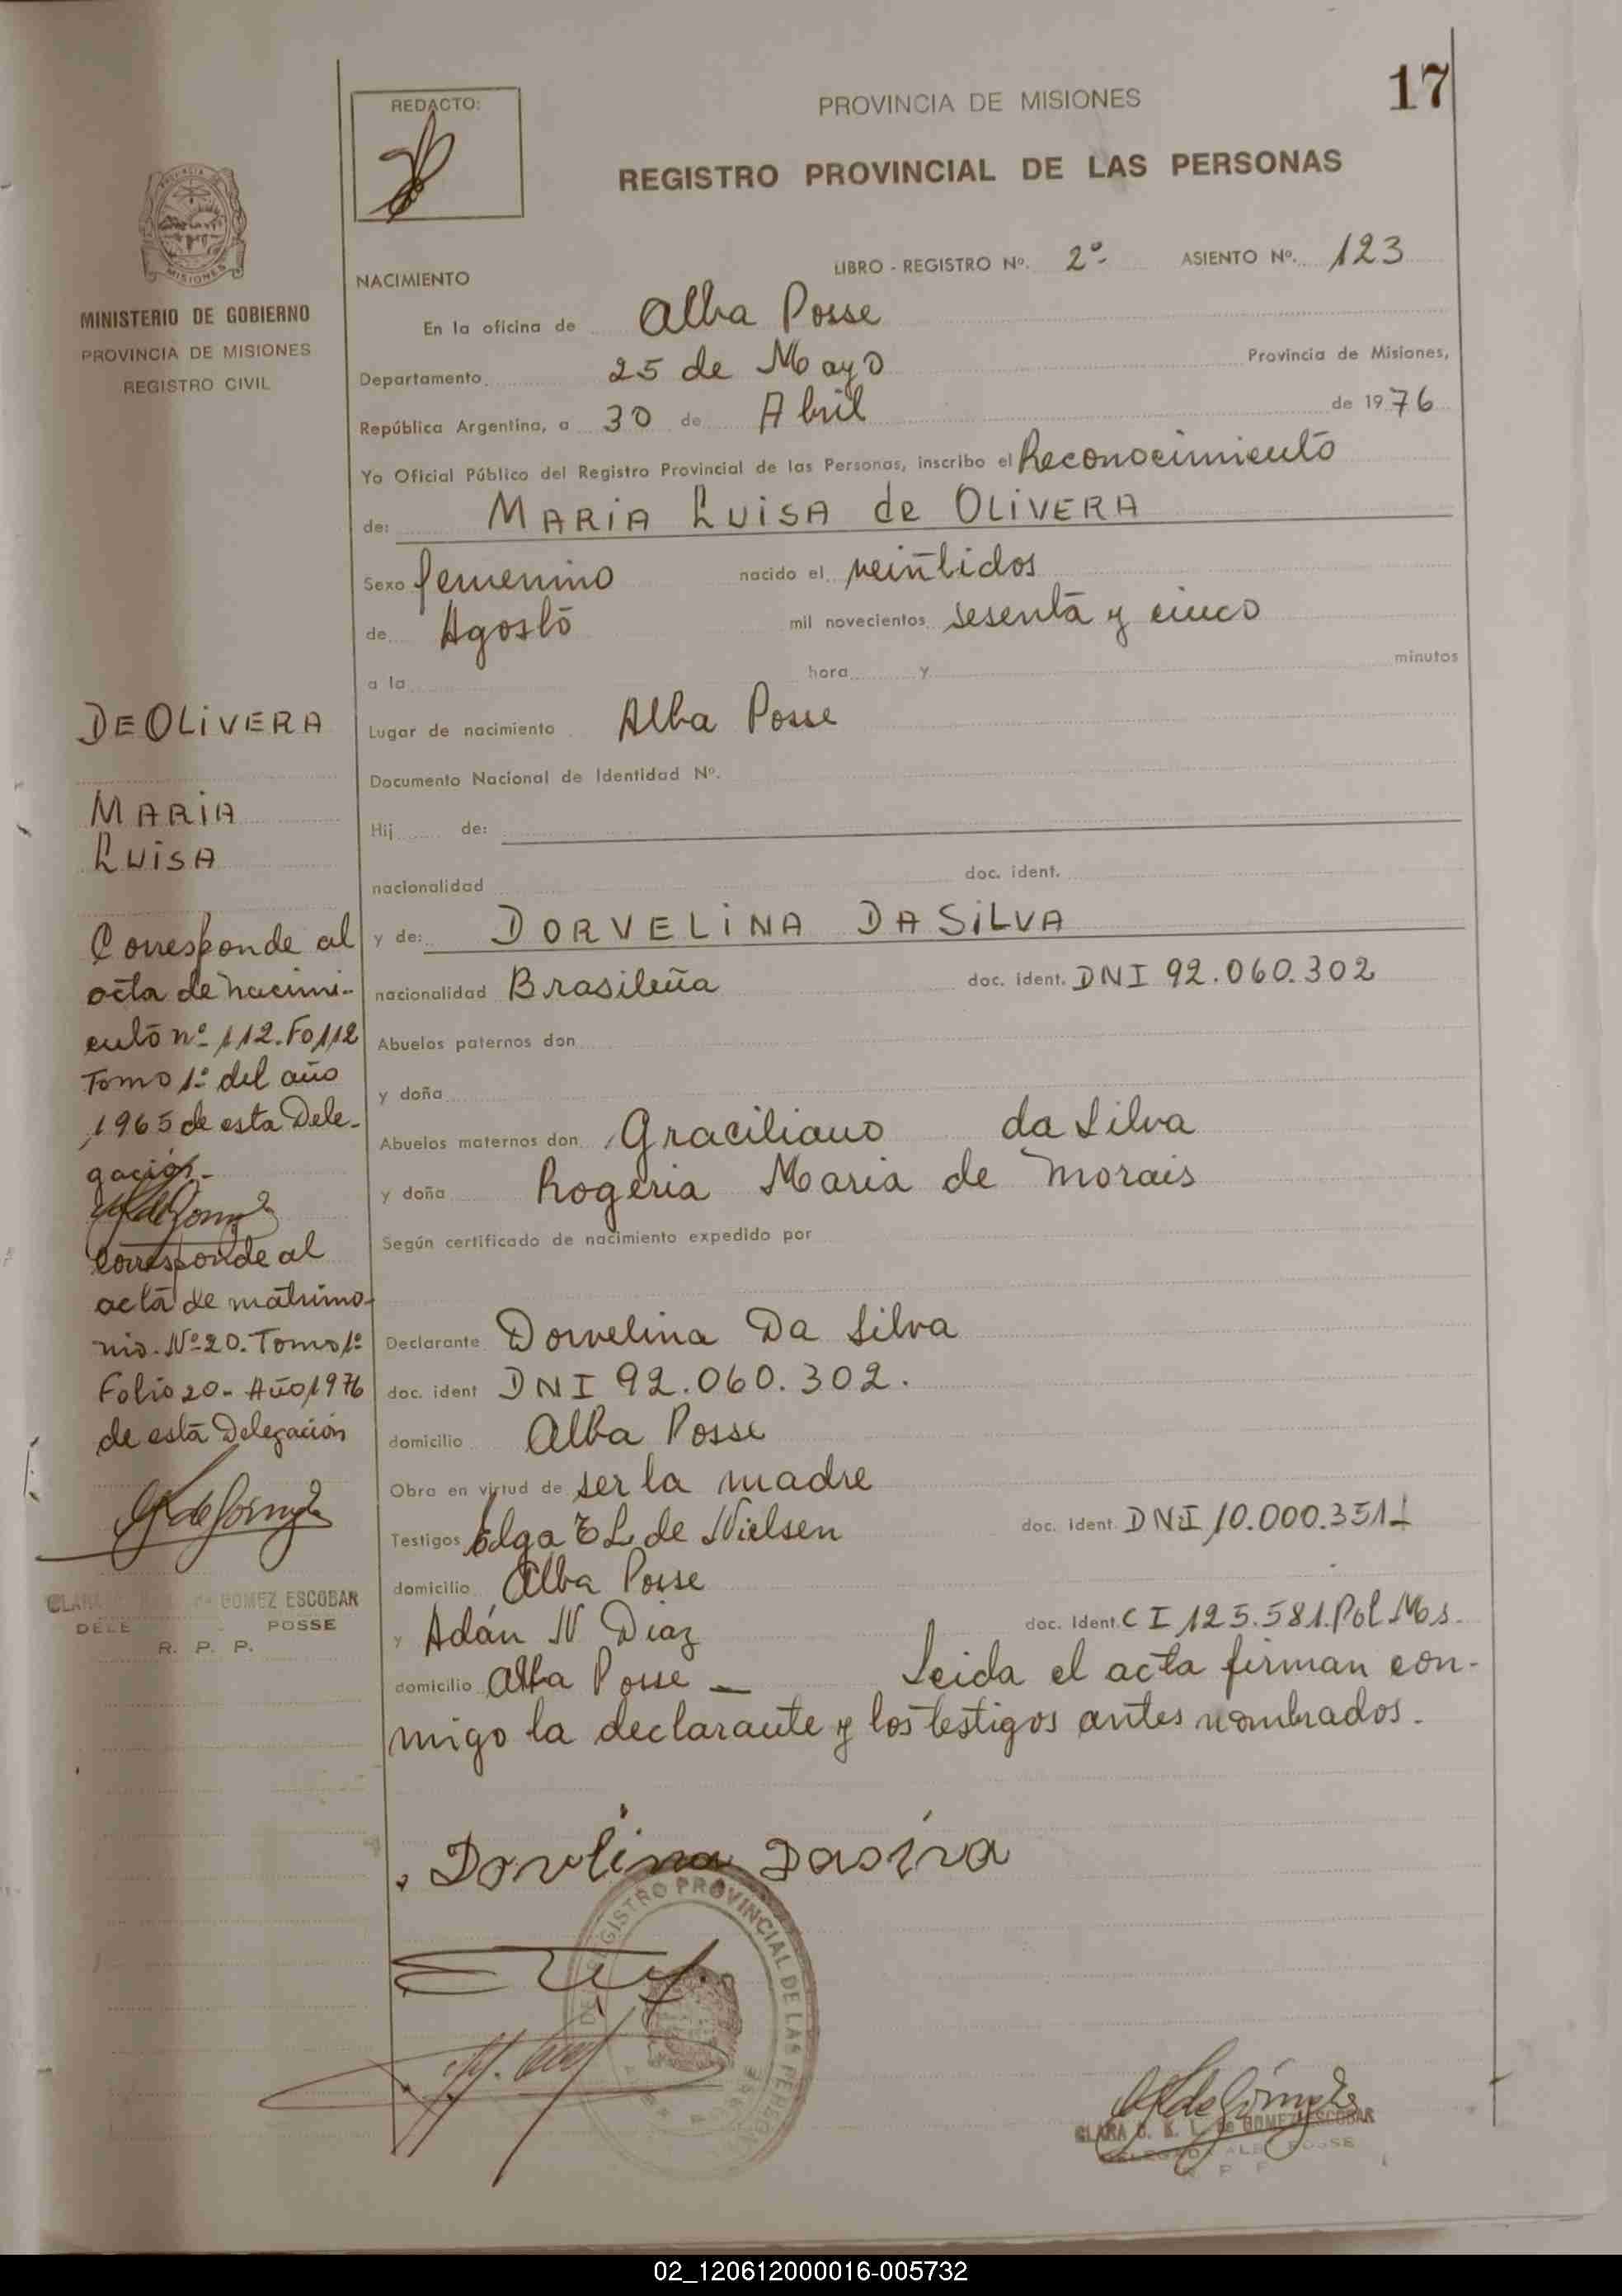 17
REDACTO:
PROVINCIA DE MISIONES
REGISTRO PROVINCIAL DE LAS PERSONAS
MISIONES
MINISTERIO DE GOBIERNO
PROVINCIA DE MISIONES
REGISTRO CIVIL
LIBRO - REGISTRO Nº. 2º- ASIENTO Nº. 123
NACIMIENTO
En la oficina de Alba Posse
Departamento 25 de Mayo Provincia de Misiones,
República Argentina, a 30 de Abril de 1976
Yo Oficial Público del Registro Provincial de las Personas, inscribo el Reconocimiento
de: MARIA LUISA de OLIVERA
Sexo femenino nacido el veintidos
de Agosto mil novecientos sesenta y cinco
a la hora y minutos
Lugar de nacimiento Alba Posse
Documento Nacional de Identidad Nº.
Hij de:
nacionalidad doc. ident.
y de: DORVELINA DA SILVA
nacionalidad Brasileña doc. ident. DNI 92.060.302
Abuelos paternos don
y doña
Abuelos maternos don Graciliano da Silva
y doña Rogeria Maria de Morais
Según certificado de nacimiento expedido por
Declarante Dorvelina Da Silva
doc. ident DNI 92.060.302.
domicilio Alba Posse
Obra en virtud de ser la madre
Testigos Elga E L de Nielsen doc. ident. DNI 10.000.351
domicilio Alba Posse
y Adán N Diaz doc. Ident. C I 125.581.Pol Ms.
domicilio Alba Posse — Leida el acta firman con-
migo la declarante y los testigos antes nombrados.
DE OLIVERA
MARIA
LUISA
Corresponde al
acta de nacimi-
ento nº 112. Fº 112
Tomo 1º del año
1965 de esta Dele-
gación.-
corresponde al
acta de matrimo-
nio. Nº 20. Tomo 1º
Folio 20- Año 1976
de esta Delegación
GOMEZ ESCOBAR
POSSE
R. P. P.
Dorvlina Dasirva
REGISTRO PROVINCIAL DE LAS PERSO
CLARA GOMEZ ESCOBAR
02_120612000016-005732